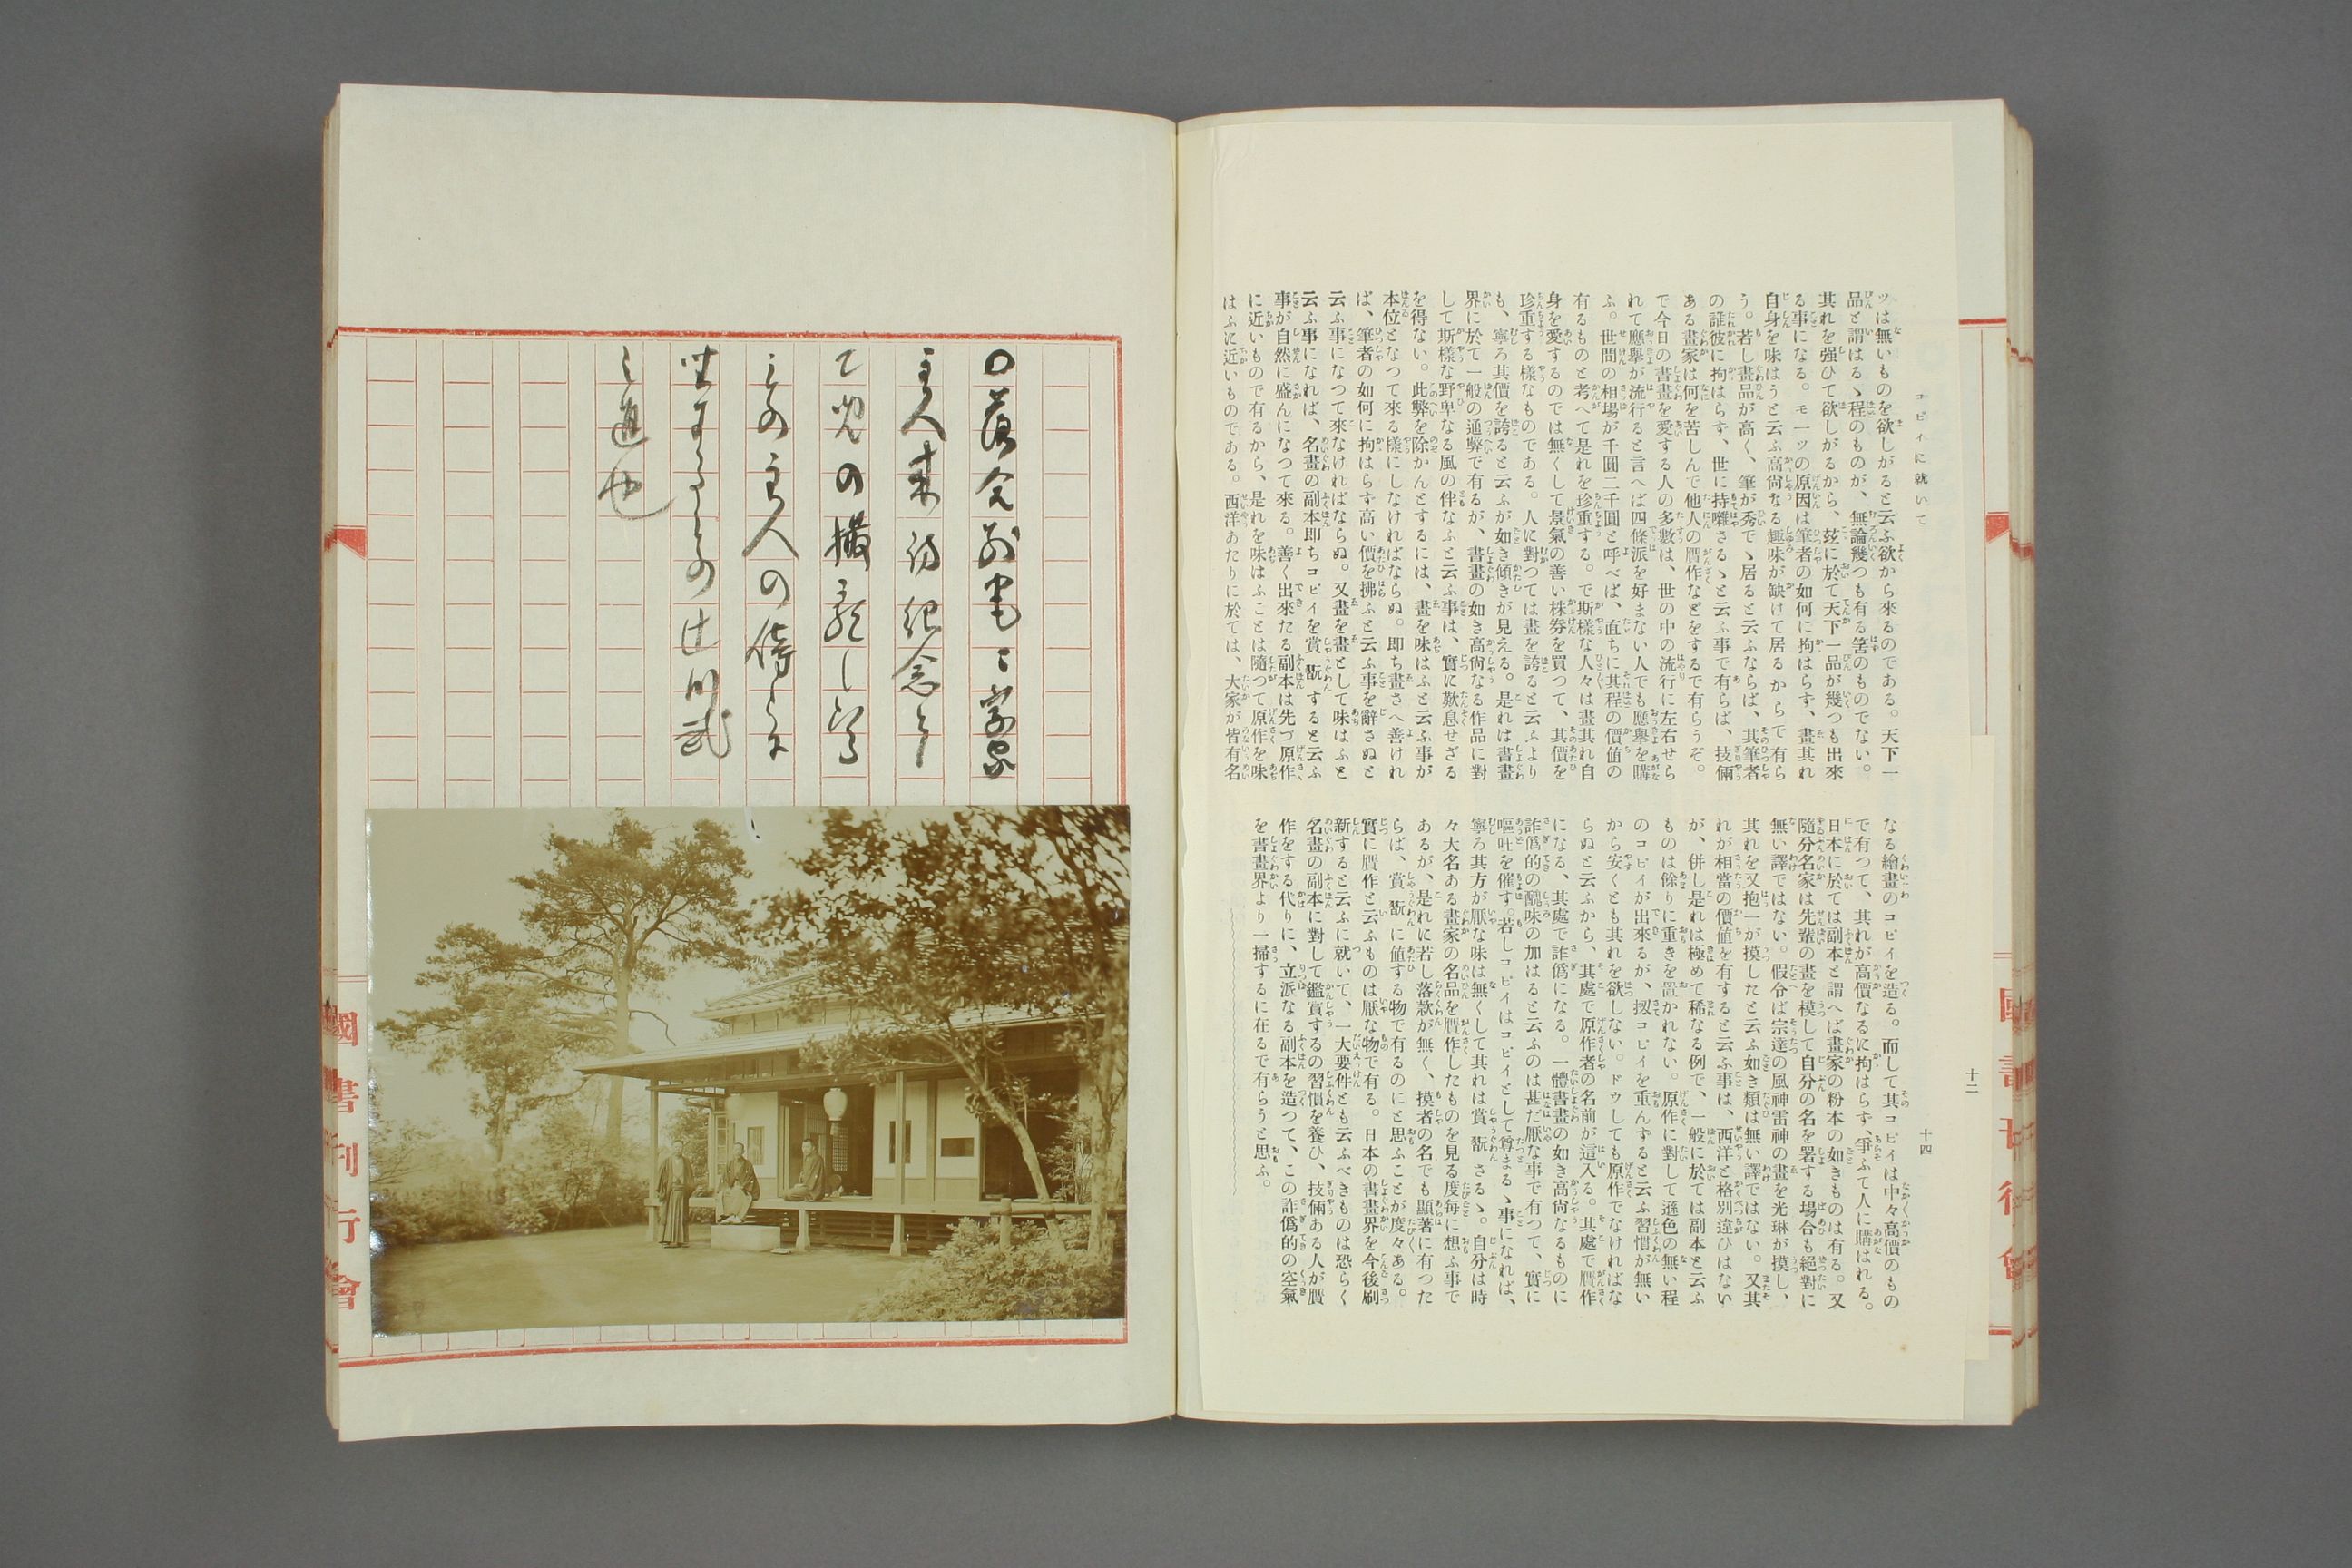 コピイに就いて
ツは無いものを欲しがると云ふ欲から來るのである。天下一
品と謂はるゝ程のものが、無論幾つも有る筈のものでない。
其れを强ひて欲しがるから、茲に於て天下一品が幾つも出來
る事になる。モ一ツの原因は筆者の如何に拘はらず、畫其れ
自身を味はうと云ふ高尙なる趣味が缺けて居るからで有ら
う。若し畫品が高く、筆が秀でゝ居ると云ふならば、其筆者
の誰彼に拘はらず、世に持囃さるゝと云ふ事で有らば、技倆
ある畫家は何を苦しんで他人の贋作などをするで有らうぞ。
で今日の書畫を愛する人の多數は、世の中の流行に左右せら
れて應擧が流行ると言へば四條派を好まない人でも應擧を購
ふ。世間の相場が千圓二千圓と呼べば、直ちに其程の價値の
有るものと考へて是れを珍重する。で斯樣な人々は畫其れ自
身を愛するのでは無くして景氣の善い株劵を買つて、其價を
珍重する樣なものである。人に對つては畫を誇ると云ふより
も、寧ろ其價を誇ると云ふが如き傾きが見える。是れは書畫
界に於て一般の通弊で有るが、書畫の如き高尙なる作品に對
して斯樣な野卑なる風の伴なふと云ふ事は、實に歎息せざる
を得ない。此弊を除かんとするには、畫を味はふと云ふ事が
本位となつて來る樣にしなければならぬ。即ち畫さへ善けれ
ば、筆者の如何に拘はらず高い價を拂ふと云ふ事を辭さぬと
云ふ事になつて來なければならぬ。又畫を畫として味はふと
云ふ事になれば、名畫の副本即ちコピイを賞翫すると云ふ
事が自然に盛んになつて來る。善く出來たる副本は先づ原作
に近いもので有るから、是れを味はふことは隨つて原作を味
はふに近いものである。西洋あたりに於ては、大家が皆有名
なる繪畫のコピイを造る。而して其コピイは中々高價のもの
で有つて、其れが高價なるに拘はらず、爭ふて人に購はれる。
日本に於ては副本と謂へば畫家の粉本の如きものは有る。又
隨分名家は先輩の畫を模して自分の名を署する場合も絕對に
無い譯ではない。假令ば宗達の風神雷神の畫を光琳が摸し、
其れを又抱一が摸したと云ふ如き類は無い譯ではない。又其
れが相當の價値を有すると云ふ事は、西洋と格別違ひはない
が、併し是れは極めて稀なる例で、一般に於ては副本と云ふ
ものは餘りに重きを置かれない。原作に對して遜色の無い程
のコピイが出來るが、扨コピイを重んずると云ふ習慣が無い
から安くとも其れを欲しない。ドウしても原作でなければな
らぬと云ふから、其處で原作者の名前が這入る。其處で贋作
になる、其處で詐僞になる。一體書畫の如き高尙なるものに
詐僞的の醜味の加はると云ふのは甚だ厭な事で有つて、實に
嘔吐を催す。若しコピイはコピイとして尊まるゝ事になれば、
寧ろ其方が厭な味は無くして其れは賞翫さるゝ。自分は時
々大名ある畫家の名品を贋作したものを見る度每に想ふ事で
あるが、是れに若し落款が無く、摸者の名でも顯著に有つた
らば、賞翫に値する物で有るのにと思ふことが度々ある。
實に贋作と云ふものは厭な物で有る。日本の書畫界を今後刷
新すると云ふに就いて、一大要件とも云ふべきものは恐らく
名畫の副本に對して鑑賞するの習慣を養ひ、技倆ある人が贋
作をする代りに、立派なる副本を造つて、この詐僞的の空氣
を書畫界より一掃するに在るで有らうと思ふ。
十二
十四
主人來訪紀念と
その主人の傍らに
之進也
國書刊行會